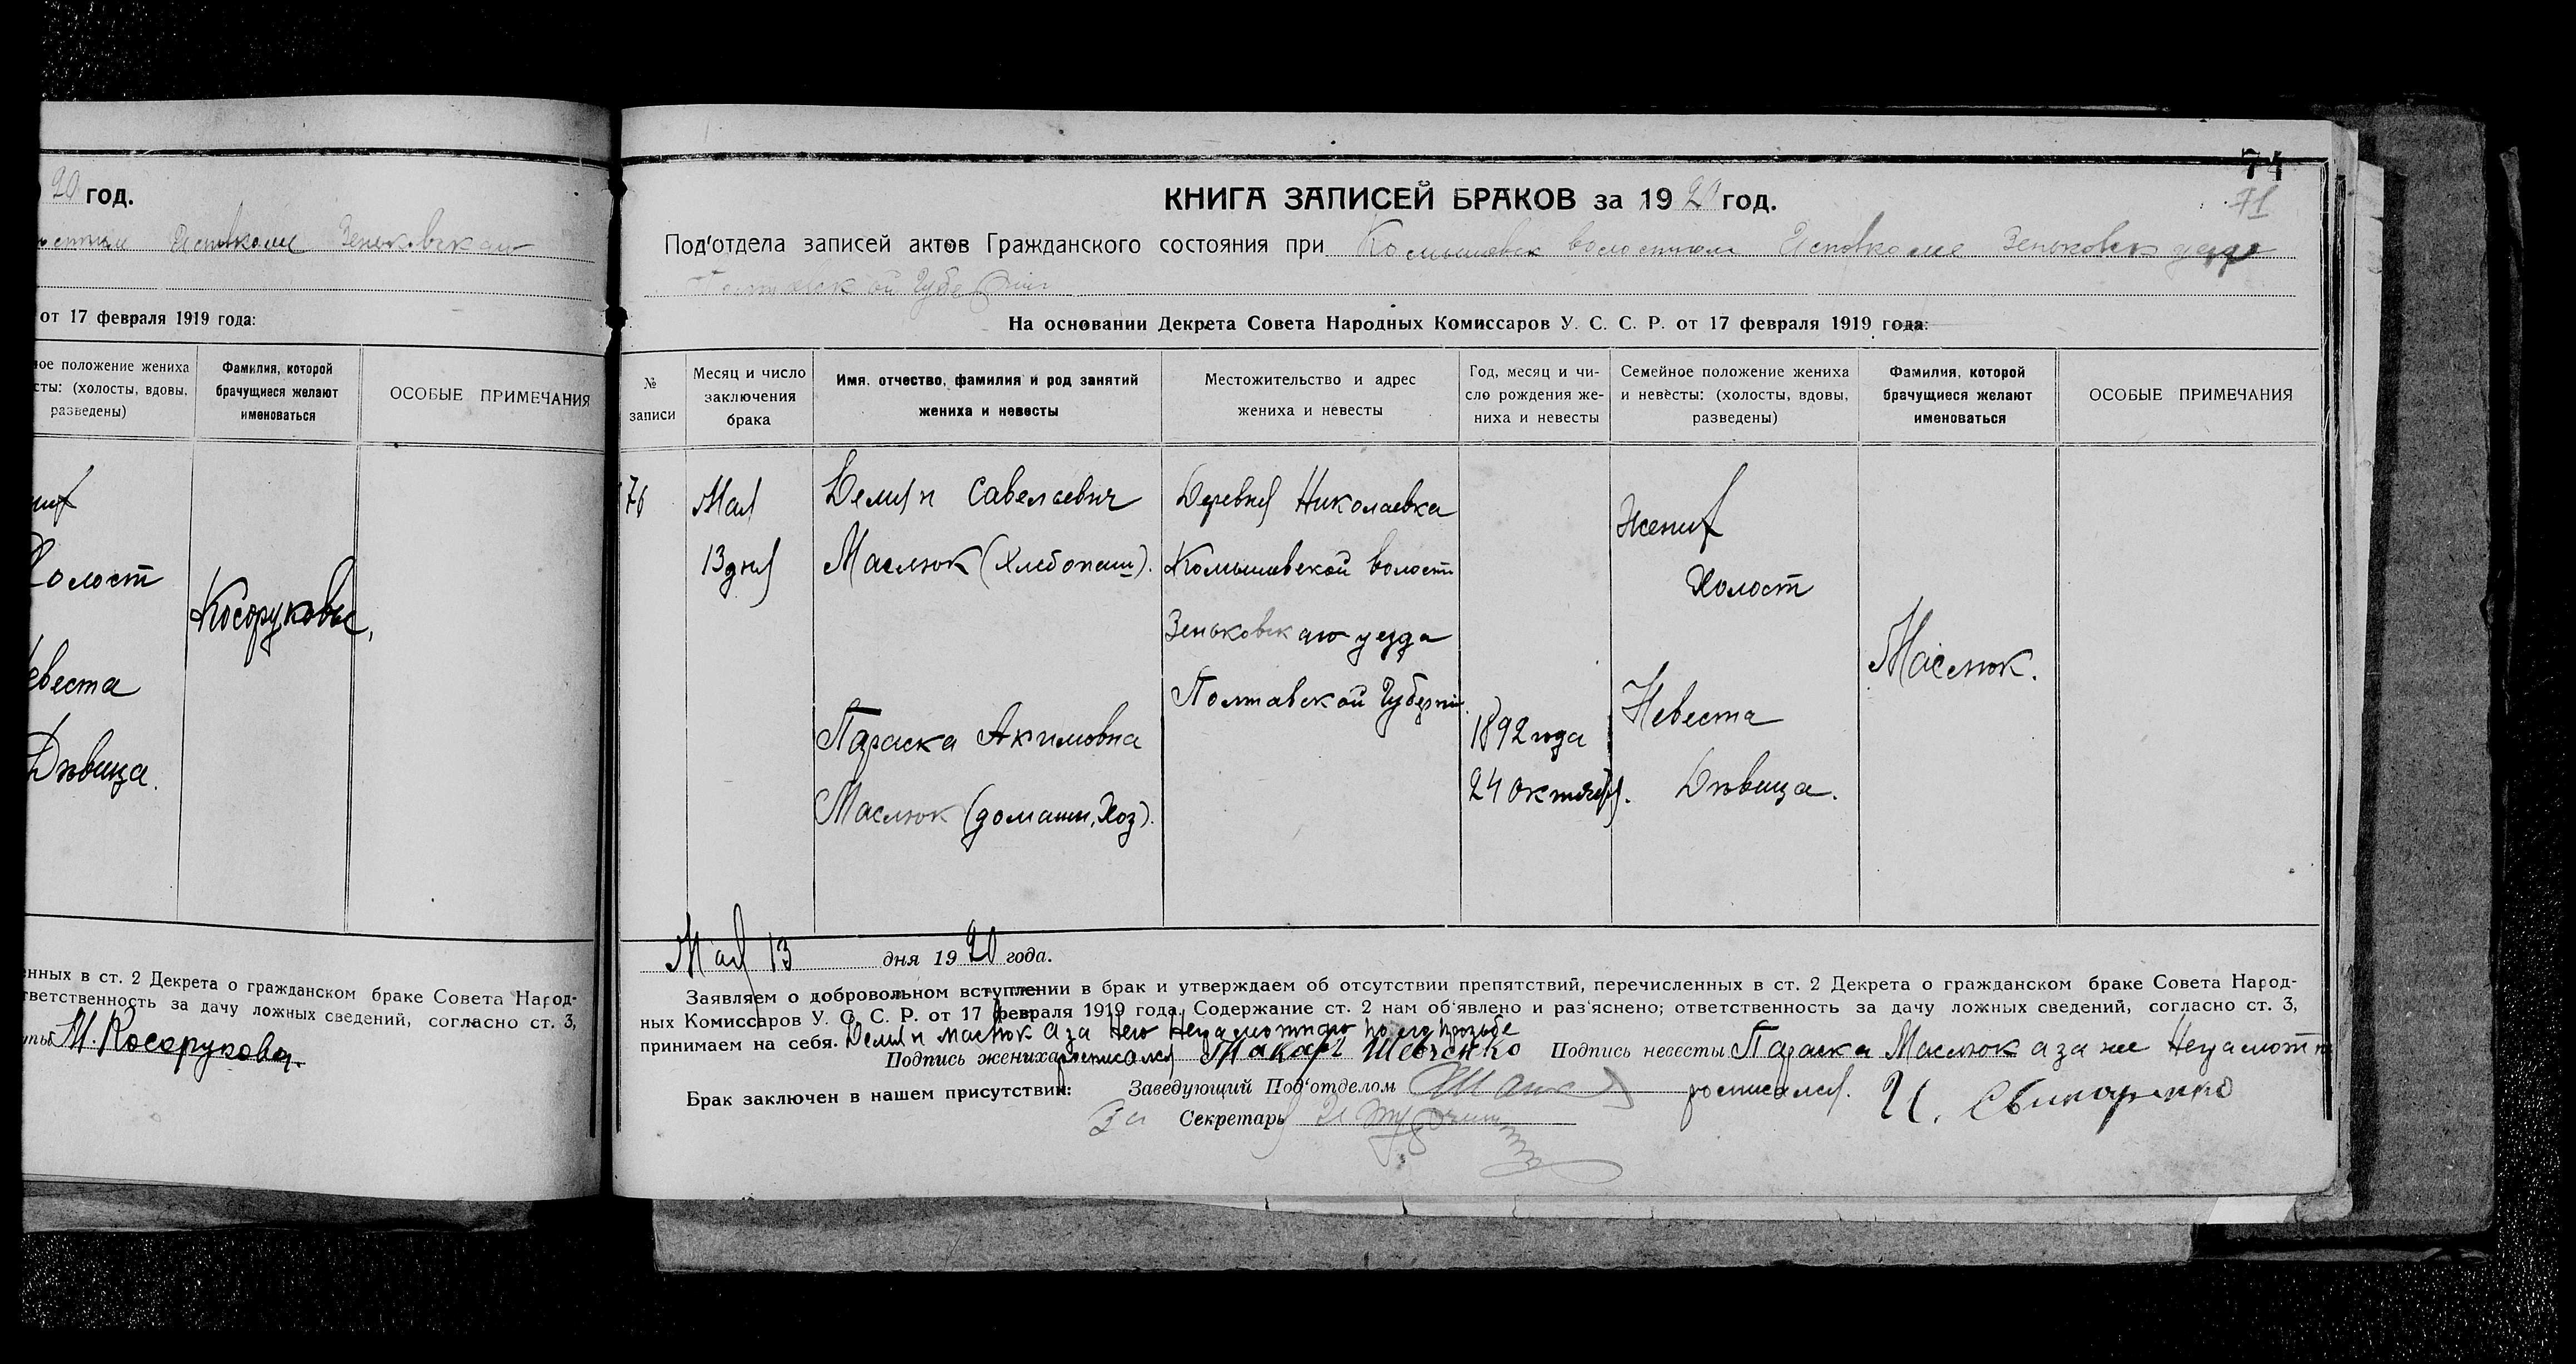 20 год.
Исполкоме Зеньковскаго
от 17 февраля 1919 года:
ное положение жениха
сты: (холосты, вдовы,
разведены)
Фамилия, которой
брачущиеся желают
именоваться
ОСОБЫЕ ПРИМЕЧАНИЯ
Холост
Косоруковы,
Невеста
Дѣвица.
нных в ст. 2 Декрета о гражданском браке Совета Народ-
тветственность за дачу ложных сведений, согласно ст. 3,
М. Косорукова.
74
71
КНИГА ЗАПИСЕЙ БРАКОВ за 1920 год.
Под'отдела записей актов Гражданского состояния при Комышевск волостном Исполкоме Зеньковск уезда
Полтавской Губернии
На основании Декрета Совета Народных Комиссаров У. С. С. Р. от 17 февраля 1919 года:
№
записи
Месяц и число
заключения
брака
Имя, отчество, фамилия и род занятий
жениха и невесты
Местожительство и адрес
жениха и невесты
Год, месяц и чи-
сло рождения же-
ниха и невесты
Семейное положение жениха
и невесты: (холосты, вдовы,
разведены)
Фамилия, которой
брачущиеся желают
именоваться
ОСОБЫЕ ПРИМЕЧАНИЯ
76
Мая
13 дня
Демян Савелаевич
Маслюк (Хлебопаш).
Параска Акимовна
Маслюк (домашн, Хоз).
Деревня Николаевка
Комышевской волости
Зеньковскаго уезда
Полтавской Губернии.
1892 года
24 октября.
Жених
Холост
Невеста
Дѣвица.
Маслюк.
Мая 13 дня 1920 года.
Заявляем о добровольном вступлении в брак и утверждаем об отсутствии препятствий, перечисленных в ст. 2 Декрета о гражданском браке Совета Народ-
ных Комиссаров У. С. С. Р. от 17 февраля 1919 года. Содержание ст. 2 нам об'явлено и раз'яснено; ответственность за дачу ложных сведений, согласно ст. 3,
принимаем на себя. Демян Маслюк а за него Неграмотного по его прозьбе
Подпись жениха росписался Макар Шевченко Подпись невесты Параска Маслюк а за нее Неграмотн
Брак заключен в нашем присутствии: Заведующий Под'отделом росписался. И. Свинаренко
За Секретарь